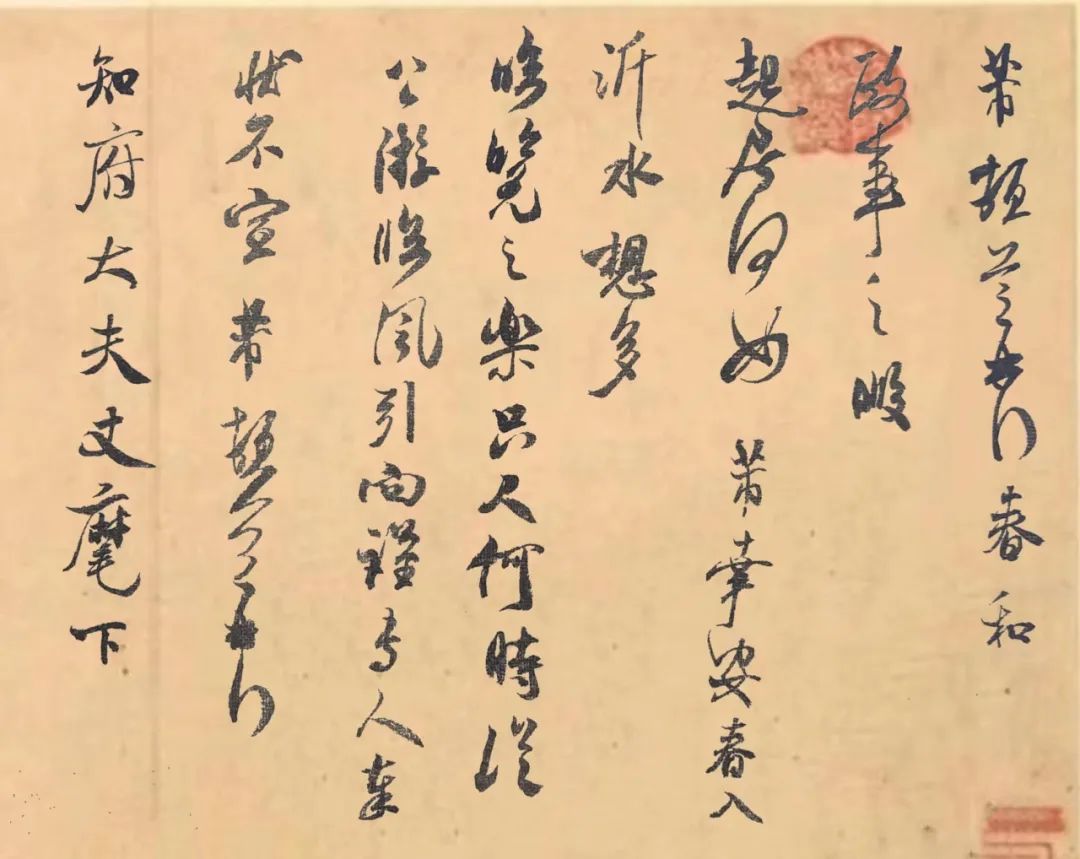 芾頓首再拜春和
政事之暇
起居何如 芾幸安春入
沂水想多
臨覽之樂只人何時從
公游臨風引向謹専人奉
狀不宣 芾頓首再拜
知府大夫丈麾下